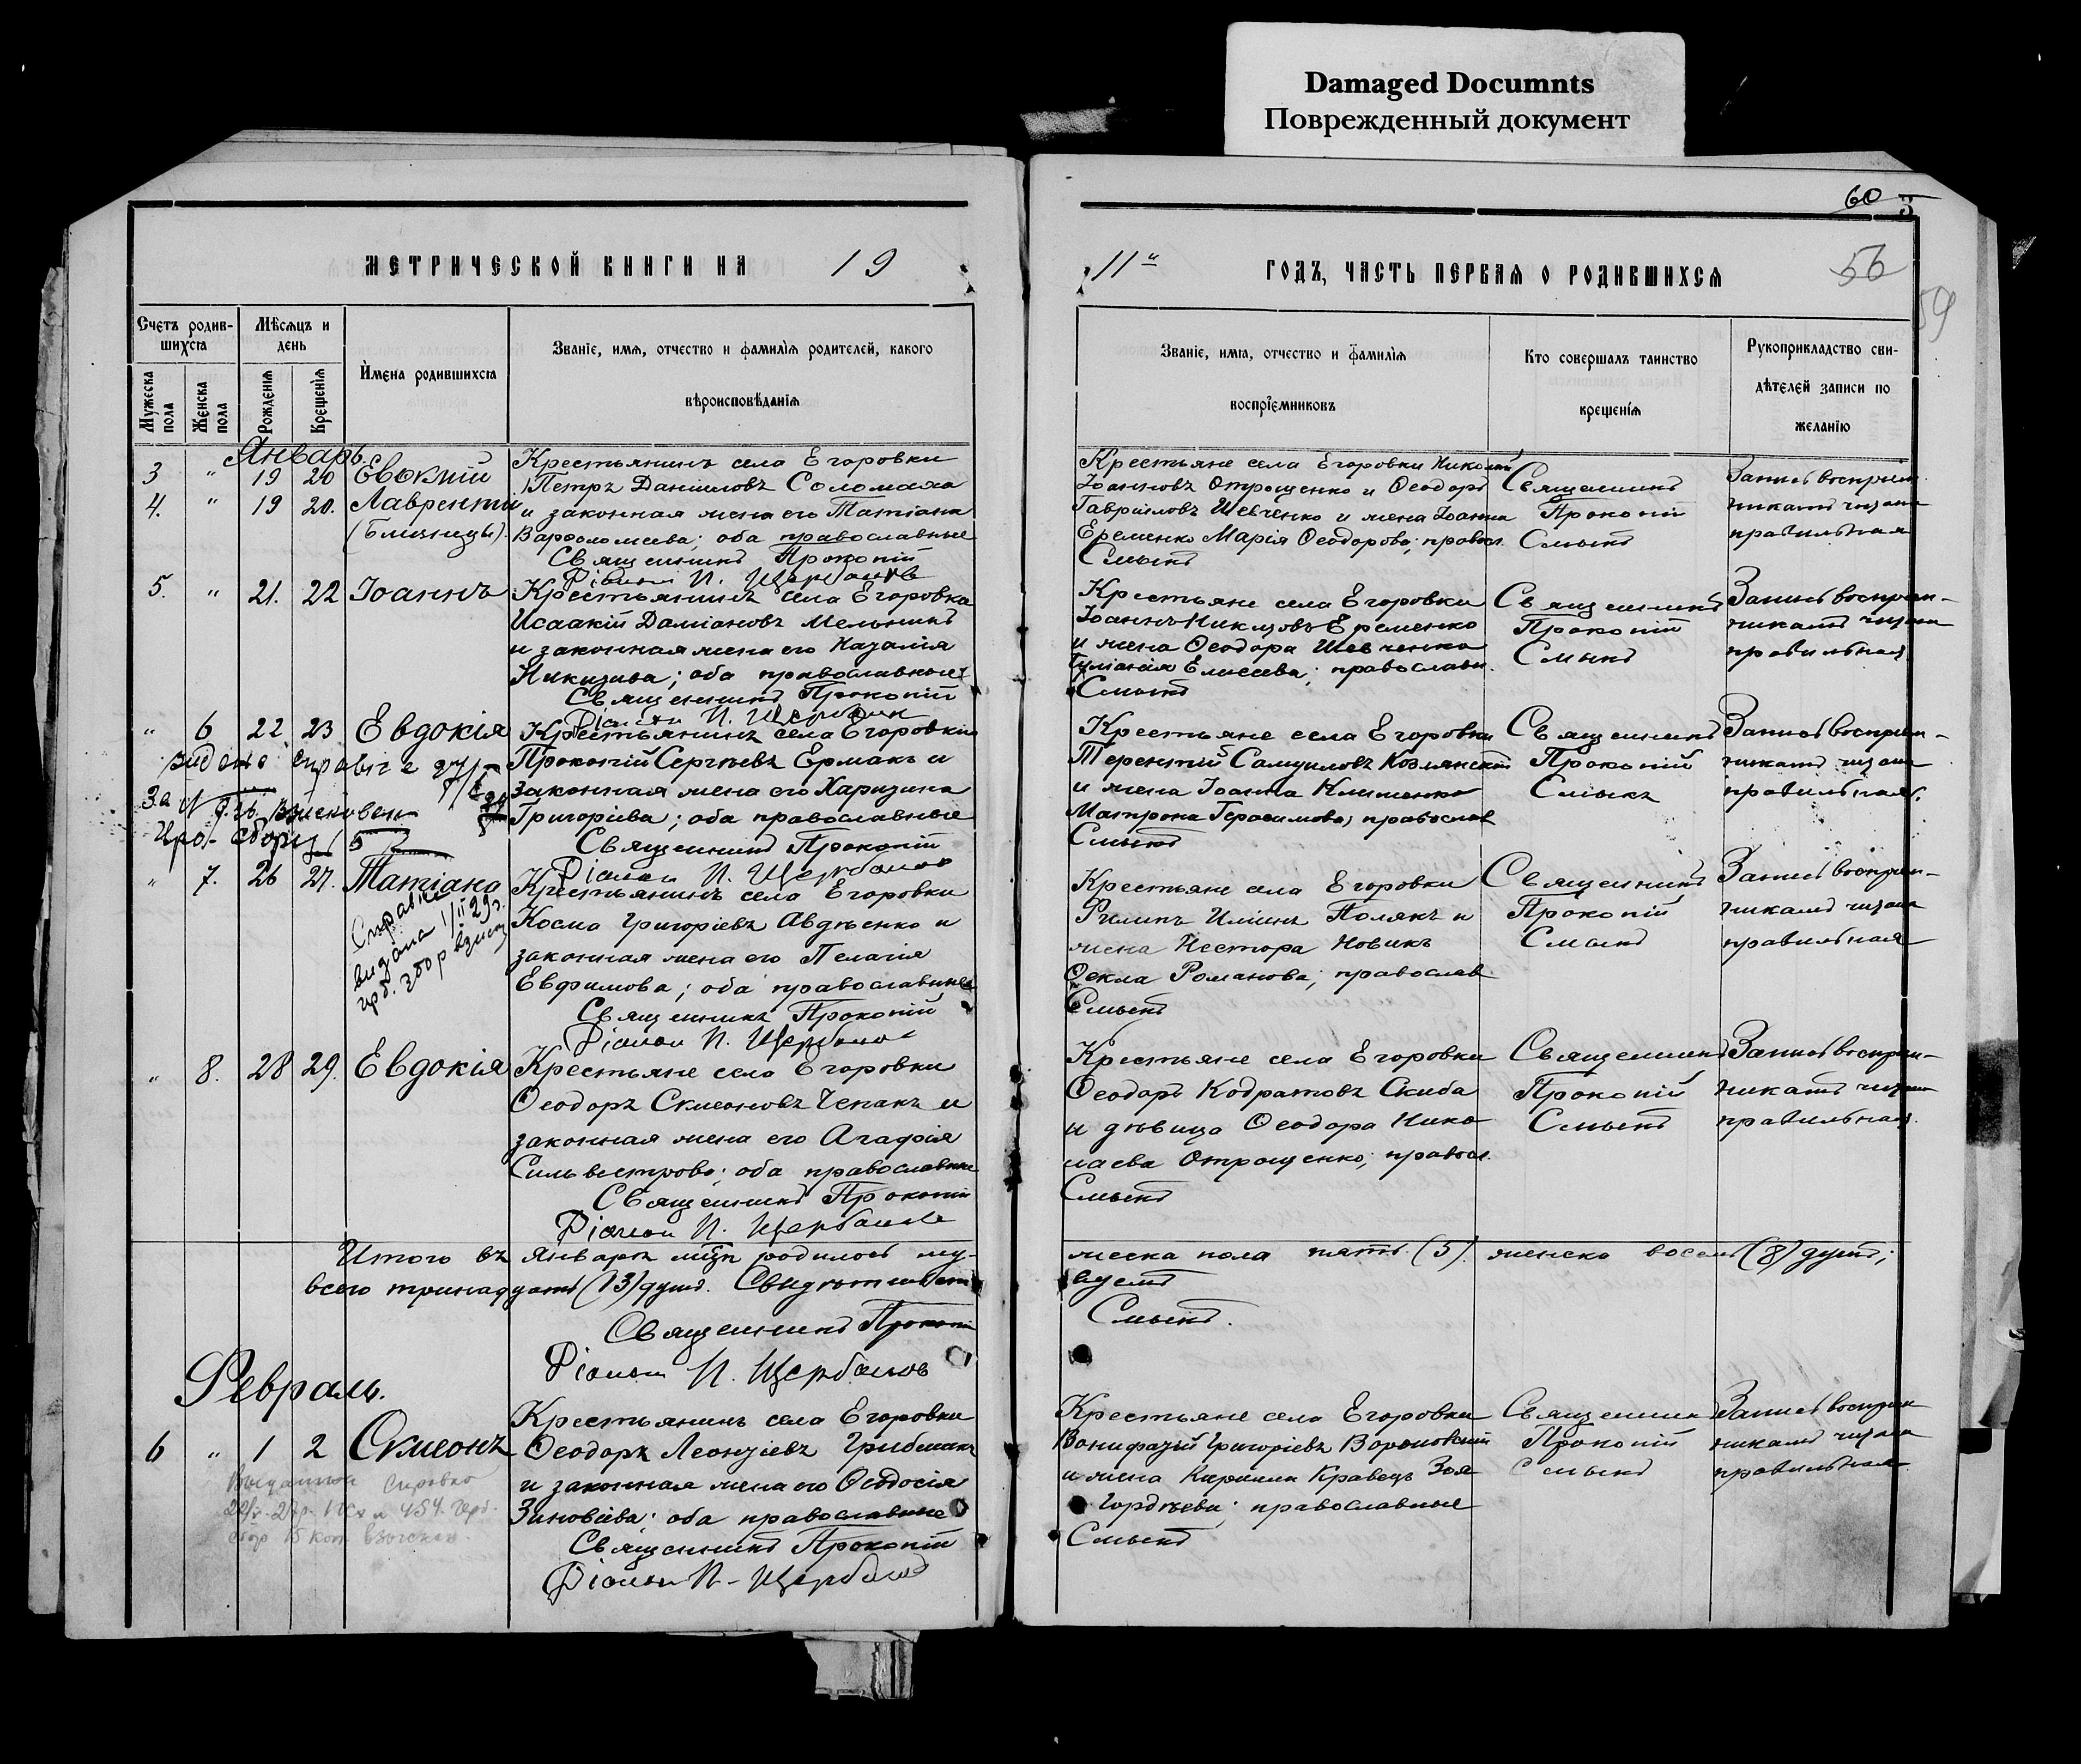 Damaged Documnts
Поврежденный документ
60
3
56
59
МЕТРИЧЕСКОЙ КНИГИ НА 19
11 ГОДЪ, ЧАСТЬ ПЕРВАЯ О РОДИВШИХСЯ
Счетъ родив-
шихся
Мѣсяцъ и
день
Мужеска пола
Женска пола
Рожденія
Крещенія
Имена родившихся
Званіе, имя, отчество и фамилія родителей, какого
вѣроисповѣданія
Званіе, имя, отчество и фамилія
воспріемниковъ
Кто совершалъ таинство
крещенія
Рукоприкладство сви-
дѣтелей записи по
желанію
Январь.
3 " 19 20 Евѳимій
4. " 19 20. Лаврентій
(Близнецы).
Крестьянинъ села Егоровки
Петръ Даніиловъ Соломаха
и законная жена его Татіана
Варѳоломеева; оба православные
Священникъ Прокопій
Діакон П. Щербаков
Крестьяне села Егоровки Николай
Іоанновъ Отрощенко и Ѳеодоръ
Гавріиловъ Шевченко и жена Іоанна
Еременко Марія Ѳеодорова; правосл.
Смыкъ
Священникъ
Прокопій
Смыкъ
Запись воспріем
никамъ читана
правильная
5. " 21. 22 Іоаннъ
Крестьянинъ села Егоровка
Исаакій Даміановъ Мельникъ
и законная жена его Наталія
Никитина; оба православные
Священникъ Прокопій
Діакон П. Щербаков
Крестьяне села Егоровки
Іоаннъ Никитовъ Еременко
и жена Ѳеодора Шевченко
Іуліанія Елисеева; православн.
Смыкъ
Священникъ
Прокопій
Смыкъ
Запись воспріем-
никамъ читана
правильная
" 6 22 23 Евдокія
Крестьянинъ села Егоровки
Прокопій Сергѣевъ Ермакъ и
законная жена его Харитина
Григоріева; оба православные
Священникъ Прокопій
Діакон П. Щербаков
Крестьяне села Егоровки
Терентій Самуиловъ Козлянскій
и жена Іоанна Клименко
Матрона Герасимова; православ
Смыкъ
Священникъ
Прокопій
Смыкъ
Запись воспріем-
никамъ читана
правильная.
" 7. 26 27. Татіана
Справка
видана 1/II 29 г.
Крестьянинъ села Егоровки
Косма Григоріевъ Авдѣенко и
законная жена его Пелагія
Евфимова; оба православные
Священникъ Прокопій
Діакон П. Щербаков
Крестьяне села Егоровки
Филипъ Иліинъ Полякъ и
жена Нестора Новикъ
Ѳекла Романова; православ.
Смыкъ
Священникъ
Прокопій
Смыкъ
Запись воспріем-
никамъ читана
правильная
" 8. 28 29. Евдокія
Крестьяне села Егоровки
Ѳеодоръ Симеоновъ Чепакъ и
законная жена его Агафія
Сильвестрова; оба православные
Священникъ Прокопій
Діакон П. Щербаков
Крестьяне села Егоровки
Ѳеодоръ Кодратовъ Скиба
и дѣвица Ѳеодора Нико
лаева Отрощенко; правосл.
Смыкъ
Священникъ
Прокопій
Смыкъ
Запись воспріем-
никамъ читана
правильная.
Итого въ Январѣ мцѣ родилось му-
жеска пола пять (5). женска восемь (8) душъ;
всего тринадцать (13) душъ.
Священникъ Прокопій
Смыкъ.
Діакон П. Щербаков
Февраль.
6 " 1 2 Симеонъ
Крестьянинъ села Егоровки
Ѳеодоръ Леонтіевъ Грибиакъ
и законная жена его Ѳеодосія
Зиновіева; оба православные
Священникъ Прокопій
Діакон П. Щербаков
Крестьяне села Егоровки
Вонифатій Григоріевъ Вороновскій
и жена Кирилла Кравецъ Зоя
Гордѣева; православные
Смыкъ
Священник
Прокопій
Смыкъ
Запись воспріем
никамъ читана
правильная